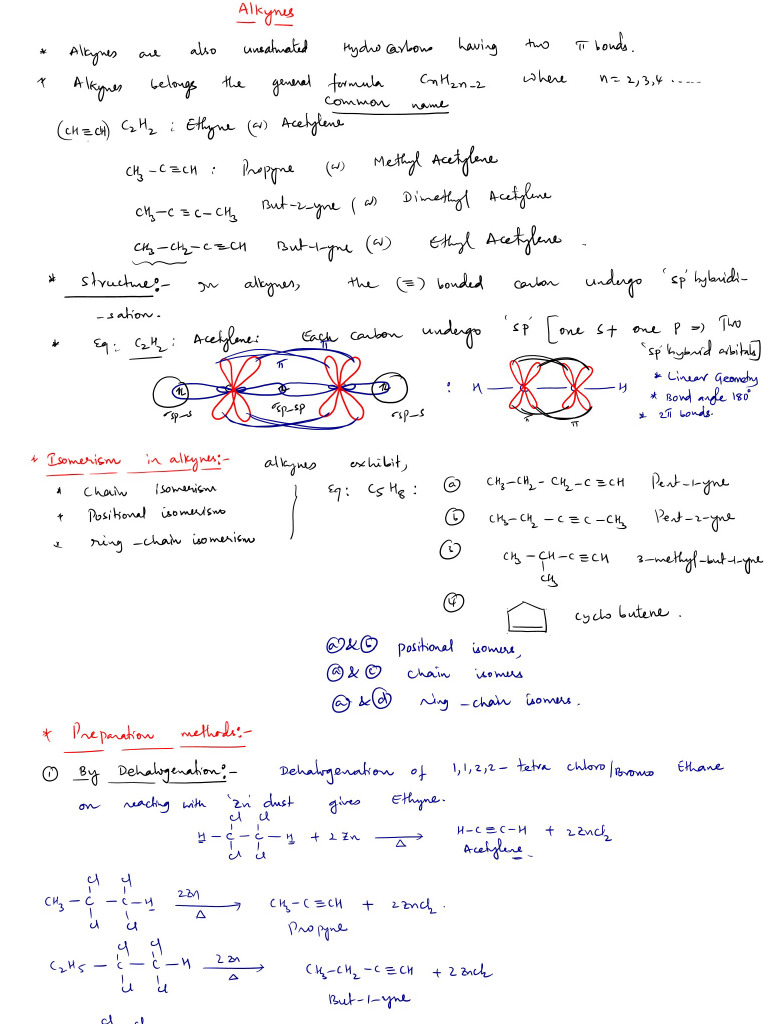 Alkynes
* Alkynes are also unsaturated Hydrocarbons having two π bonds.
* Alkynes belongs the general formula CnH2n-2 where n = 2,3,4 .....
Common name
(CH≡CH) C2H2 : Ethyne (or) Acetylene
CH3-C≡CH : Propyne (or) Methyl Acetylene
CH3-C≡C-CH3 But-2-yne (or) Dimethyl Acetylene
CH3-CH2-C≡CH But-1-yne (or) Ethyl Acetylene.
* Structure:- In alkynes, the (≡) bonded carbon undergo 'sp' hybridi-
-sation.
* Eg: C2H2 : Acetylene: Each carbon undergo 'sp' [one s + one p ⇒ Two
'sp' hybrid orbitals]
π
π
σsp-s σsp-sp σsp-s
: H H
π π
* Linear Geometry
* Bond angle 180°
* 2π bonds.
* Isomerism in alkynes:- alkynes exhibit,
* Chain Isomerism
+ Positional isomerism
* ring-chain isomerism
Eg: C5H8 :
(a) CH3-CH2-CH2-C≡CH Pent-1-yne
(b) CH3-CH2-C≡C-CH3 Pent-2-yne
(3) CH3-CH-C≡CH 3-methyl-but-1-yne
CH3
(4) cyclobutene.
(a) & (b) positional isomers,
(a) & (c) chain isomers
(a) & (d) ring-chain isomers.
* Preparation methods:-
(1) By Dehalogenation:- Dehalogenation of 1,1,2,2-tetra chloro/Bromo Ethane
on reacting with 'Zn' dust gives Ethyne.
Cl Cl
H-C-C-H + 2Zn → H-C≡C-H + 2ZnCl2
Cl Cl Δ Acetylene.
Cl Cl
CH3-C-C-H 2Zn → CH3-C≡CH + 2ZnCl2.
Cl Cl Δ Propyne
Cl Cl
C2H5-C-C-H 2Zn → CH3-CH2-C≡CH + 2ZnCl2
Cl Cl Δ But-1-yne
Cl Cl